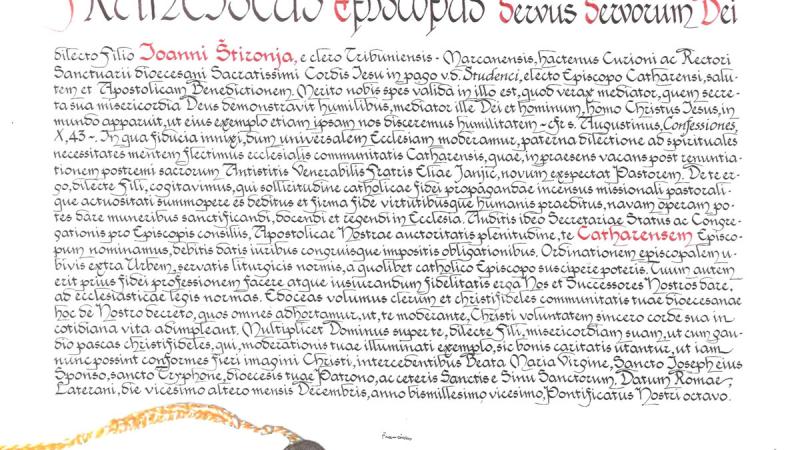 Franciscus Episcopus Servus Servorum Dei
dilecto Filio Ioanni Štironja, e clero Tribuniensis - Marcanensi, hactenus Curioni ac Rectori
Sanctuarii dioecesani Sacratissimi Cordis Iesu in pago v.d. Studenci, electo Episcopo Catharensi, salu-
tem et Apostolicam Benedictionem. Merito nobis spes valida in illo est, quod verax mediator, quem secre-
ta sua misericordia Deus demonstravit humilibus, mediator ille Dei et hominum, homo Christus Iesus, in
mundo apparuit, ut eius exemplo etiam ipsam nos disceremus humilitatem - cfr s. Augustinus, Confessiones,
X, 43 -. In qua fiducia innixi, dum universalem Ecclesiam moderamur, paterna dilectione ad spirituales
necessitates mentem flectimus ecclesialis communitatis Catharensis, quae, in praesens vacans post renuntia-
tionem postremi sacrorum Antistitis Venerabilis Fratris Eliae Janjić, novum exspectat Pastorem. De te er-
go, dilecte Fili, cogitavimus, qui sollicitudine catholicae fidei propagandae incensus missionali pastorali-
que actuositati summopere es deditus et firma fide virtutibusque humanis praeditus, navam operam po-
tes dare muneribus sanctificandi, docendi et regendi in Ecclesia. Auditis ideo Secretariae Status ac Congre-
gationis pro Episcopis consiliis, Apostolicae Nostrae auctoritatis plenitudine, te Catharensem Episco-
pum nominamus, debitis datis iuribus congruisque impositis obligationibus. Ordinationem episcopalem u-
bivis extra Urbem, servatis liturgicis normis, a quolibet catholico Episcopo suscipere poteris. Tuum autem
erit prius fidei professionem facere atque iusiurandum fidelitatis erga Nos et Successores Nostros dare,
ad ecclesiasticae legis normas. Edoceas volumus clerum et christifideles communitatis tuae dioecesanae
hoc de Nostro decreto, quos omnes adhortamur, ut, te moderante, Christi voluntatem sincero corde sua in
cotidiana vita adimpleant. Multiplicet Dominus super te, dilecte Fili, misericordiam suam, ut cum gau-
dio pascas christifideles, qui, moderationis tuae illuminati exemplo, sic bonis caritatis utantur, ut iam
nunc possint conformes fieri imagini Christi, intercedentibus Beata Maria Virgine, Sancto Ioseph eius
Sponso, sancto Tryphone, dioecesis tuae Patrono, ac ceteris Sanctis e Sinu Sanctorum. Datum Romae,
Laterani, die vicesimo altero mensis Decembris, anno bismillesimo vicesimo, Pontificatus Nostri octavo.
Franciscus